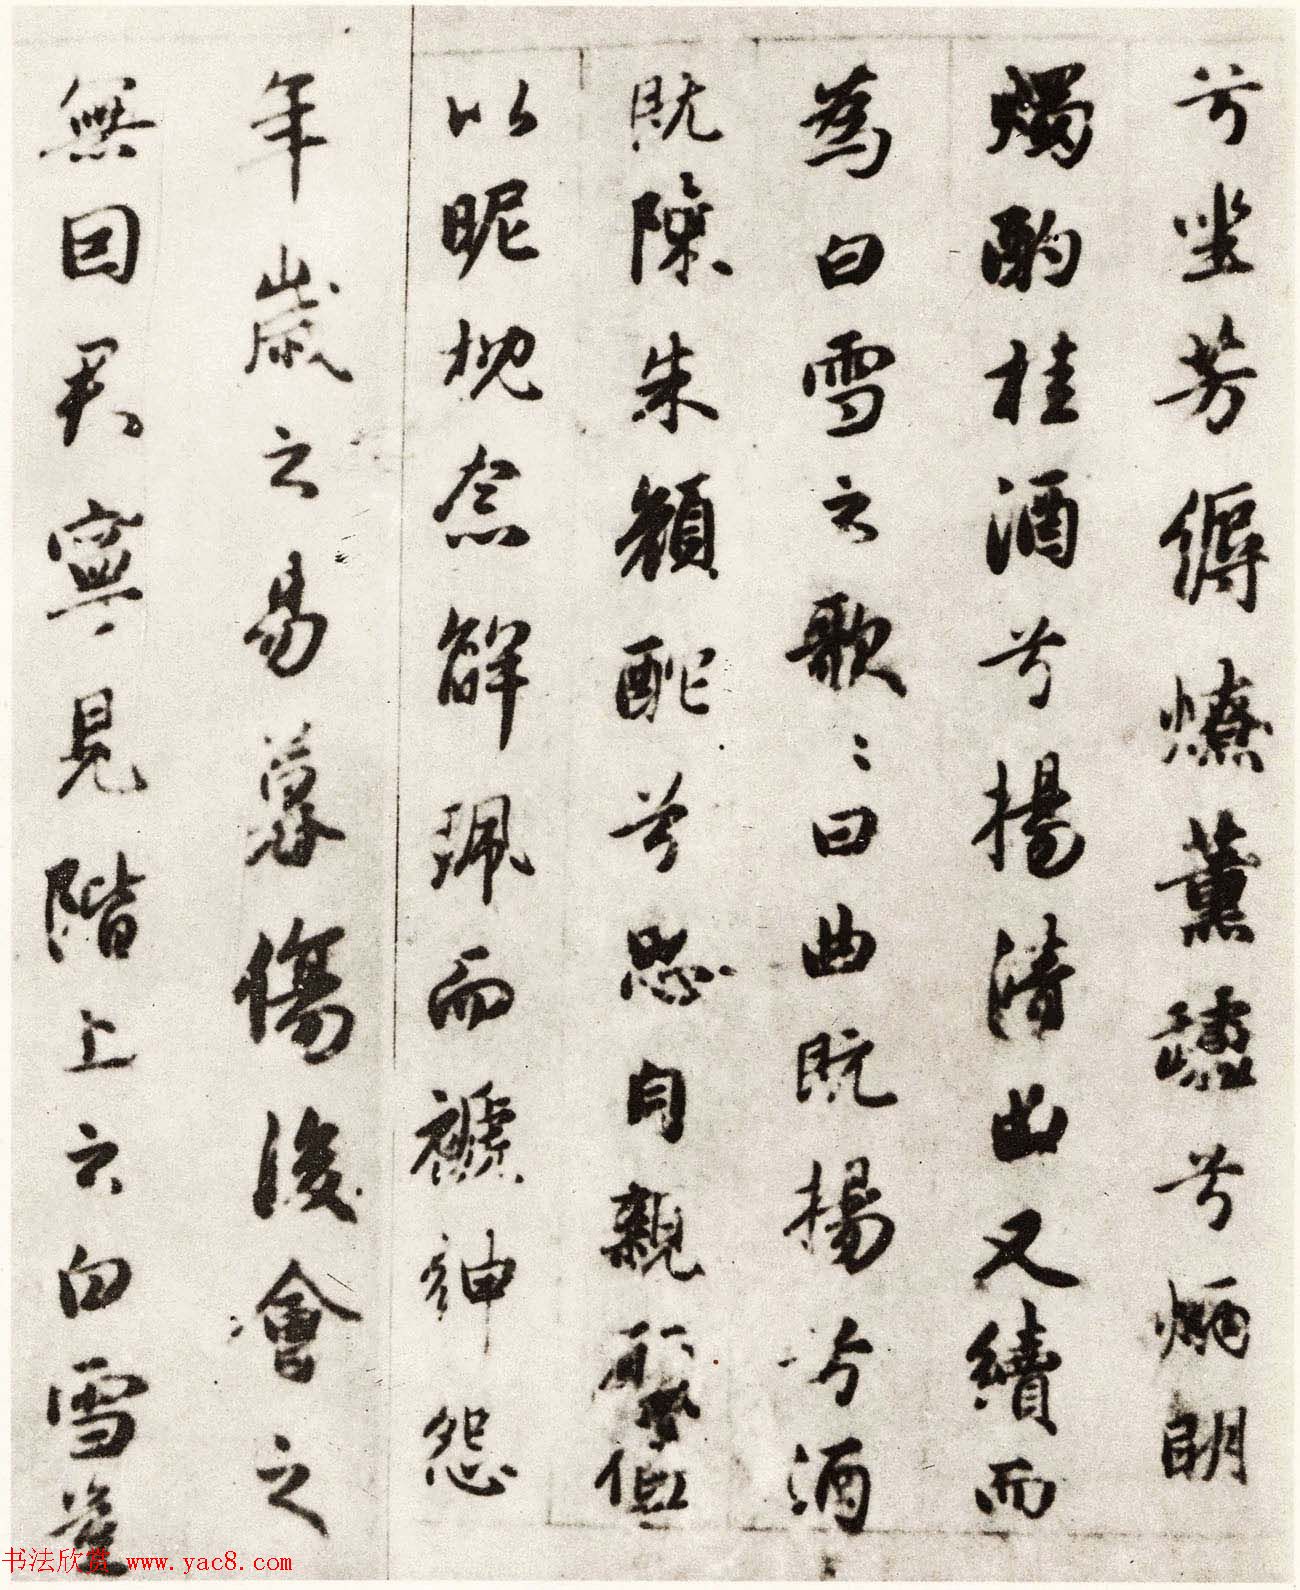 兮坐芳縟燎薰鑪兮炳明
燭酌桂酒兮揚清曲又續而
為白雪之歌〻曰曲既揚兮酒
既陳朱顏酡兮思自親
以昵枕念解珮而褫紳怨
年歲之易暮傷後會之
無因君寧見階上之白雪豈
书法欣赏 www.yac8.com